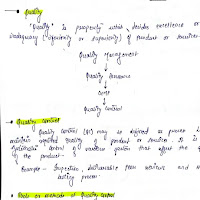 Quality
"Quality" is property which decides excellence or
inadequacy (inferiority or superiority) of product or service.
Quality Management
Quality Assurance
Quality Control
Quality Control
Quality Control (QC) may be defined as process
maintain required quality of product or service. It is
systematic control of various factors that affect the
of the product.
Example - Inspection, deliverable peer reviews and
testing process.
Tools or methods of Quality Control